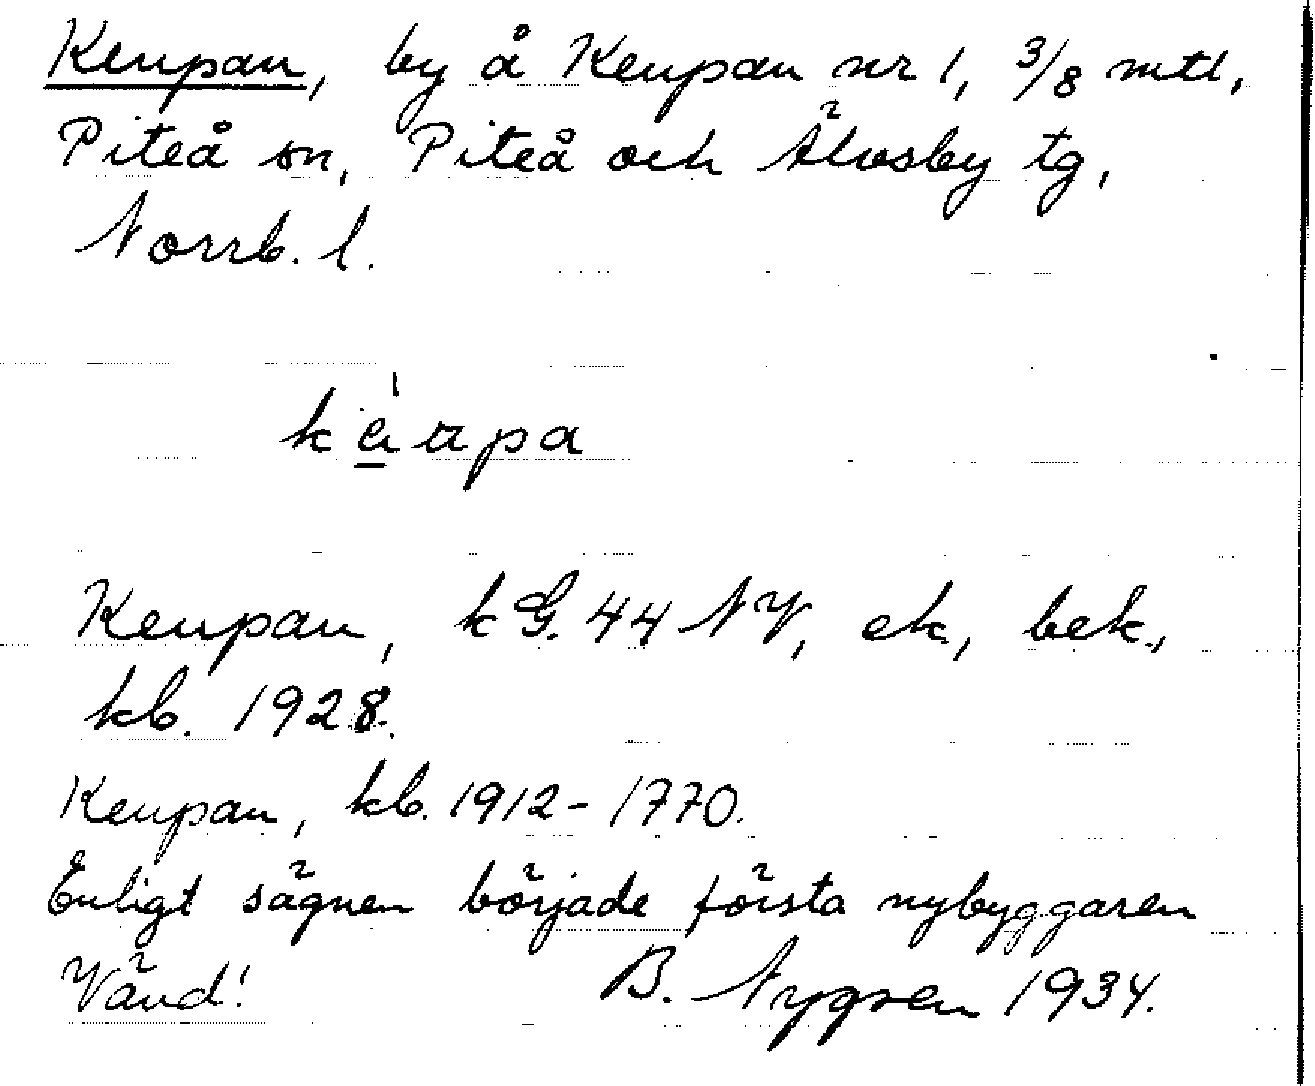 Keupan, by å Keupan nr 1, 3/8 mtl,
Piteå sn, Piteå och Älvsby tg,
Norrb. l.
Keupan, kG. 44 NV, ek, bek.,
kb. 1928.
Keupan, kb. 1912-1770.
Enligt sägnen började första nybyggaren
Vänd! B. Nygren 1934.